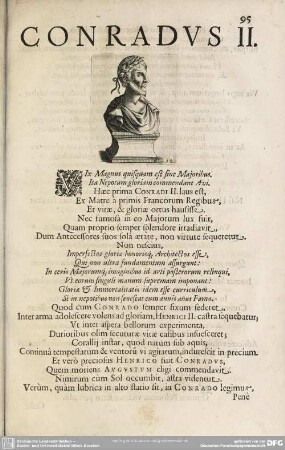 95
CONRADVS II.
VIx Magnus quisquam est sine Majoribus.
Ita Nepotum gloriam commendant Avi.
Hæc prima CONRADI II. laus est,
Et Matre à primis Francorum Regibus,
Et vitæ, & gloriæ ortus hausisse.
Nec fumosa in eo Majorum lux fuit,
Quam proprio semper splendore irradiavit.
Dum Antecessores suos solâ ætate, non virtute sequeretur.
Non nescius,
Imperfectos gloriæ honorisq; Architectos esse,
Qui non ultra fundamentum assurgunt:
In ceris Majorumq; imaginibus id arti posterorum relinqui,
Vt eorum singuli manum supremam imponant:
Gloriæ & Immortalitatis idem esse curriculum.
Si in nepotibus non senescat cum annis avus Fama.
Quod cum CONRADO semper fixum sederet
Inter arma adolescere volens ad gloriam, HENRICI II. castra sequebatur;
Vt inter aspera bellorum experimenta,
Durioribus olim secururæ vitæ casibus insuesceret;
Corallij instar, quod natum sub aquis,
Continuâ tempestatum & ventorū vi agitatum, indurescit in precium.
Et verò preciosus HENRICO fuit CONRADUS,
Quem moriens AUGUSTUM eligi commendavit.
Nimirum cùm Sol occumbit, astra videntur.
Verùm, quàm lubrica in alto statio sit, in CONRADO legimus,
Penè